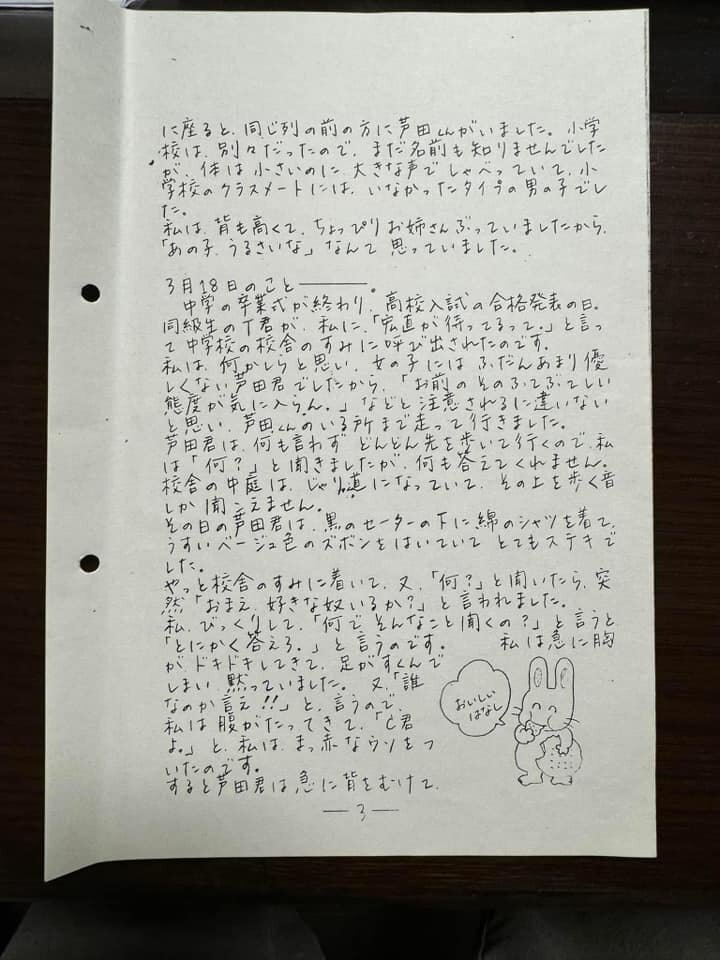 に座ると、同じ列の前の方に芦田くんがいました。小学
校は、別々だったので、まだ名前も知りませんでした
が、体は小さいのに、大きな声でしゃべっていて、小
学校のクラスメートには、いなかったタイプの男の子でし
た。
私は、背も高くて、ちょっぴりお姉さんぶっていましたから、
「あの子、うるさいな」なんて思っていました。
3月18日のこと―――。
中学の卒業式が終わり、高校入試の合格発表の日。
同級生のT君が、私に、「宏直が待ってるって。」と言っ
て中学校の校舎のすみに呼び出されたのです。
私は、何かしらと思い、女の子にはふだんあまり優
しくない芦田君でしたから、「お前のそのふてぶてしい
態度が気に入らん。」などと注意されるに違いない
と思い、芦田くんのいる所まで走って行きました。
芦田君は、何も言わずどんどん先を歩いて行くので、私
は「何?」と聞きましたが、何も答えてくれません。
校舎の中庭は、じゃり道になっていて、その上を歩く音
しか聞こえません。
その日の芦田君は、黒のセーターの下に綿のシャツを着て、
うすいベージュ色のズボンをはいていてとてもステキで
した。
やっと校舎のすみに着いて、又、「何?」と聞いたら、突
然「おまえ、好きな奴いるか?」と言われました。
私、びっくりして、「何でそんなこと聞くの?」と言うと、
「とにかく答えろ。」と言うのです。 私は急に胸
がドキドキしてきて、足がすくんで
しまい、黙っていました。又、「誰
なのか言え!!」と、言うので、
私は腹がたってきて、「C君
よ。」と、私は、まっ赤なウソをつ
いたのです。
すると芦田君は急に背をむけて、
おいしい
はなし
―3―